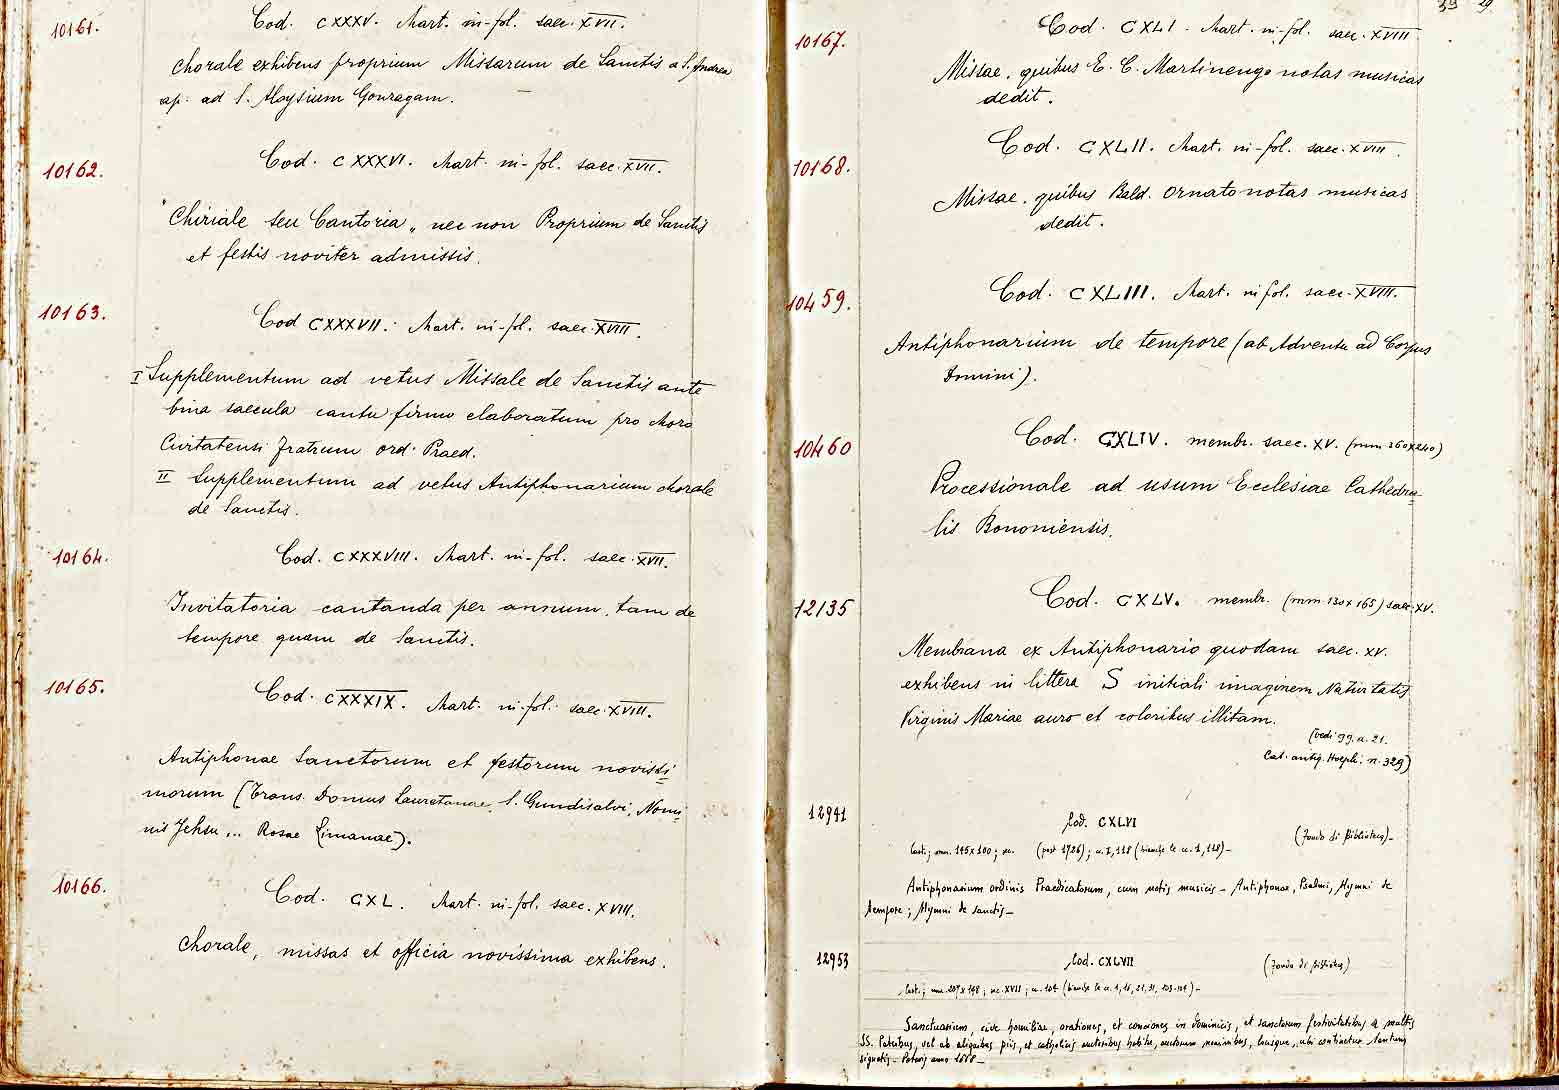 10161.
Cod. CXXXV. Chart. in-fol. saec. XVII.
Chorale exhibens proprium Missarum de Sanctis a S. Andrea
ap. ad S. Aloysium Gonzagam.
10162.
Cod. CXXXVI. Chart. in-fol. saec. XVII.
"Chiriale seu Cantoria" nec non Proprium de Sanctis
et festis noviter admissis.
10163.
Cod CXXXVII. Chart. in-fol. saec. XVIII.
I Supplementum ad vetus Missale de Sanctis ante
bina saecula cantu firmo elaboratum pro choro
Civitatensi Fratrum ord. Praed.
II Supplementum ad vetus Antiphonarium chorale
de Sanctis.
10164.
Cod. CXXXVIII. Chart. in-fol. saec. XVII.
Invitatoria cantanda per annum, tam de
tempore quam de Sanctis.
10165.
Cod. CXXXIX. Chart. in-fol. saec. XVIII.
Antiphonae Sanctorum et festorum novissi
morum (Trans. Domus Lauretanae, S. Gundisalvi, Nomi
nis Jehsu ... Rosae Limanae).
10166.
Cod. CXL. Chart. in-fol. saec. XVIII.
Chorale, missas et officia novissima exhibens.
39 29
10167.
Cod. CXLI. Chart. in-fol. saec. XVIII
Missae, quibus E. C. Martinengo notas musicas
dedit.
10168.
Cod. CXLII. Chart. in-fol. saec. XVIII.
Missae, quibus Bald. Ornato notas musicas
dedit.
10459.
Cod. CXLIII. Chart. in fol. saec. XVIII.
Antiphonarium de tempore (ab Adventu ad Corpus
Domini).
10460
Cod. CXLIV. membr. saec. XV. (mm 360x240)
Processionale ad usum Ecclesiae Cathedra
lis Bononiensis.
12135
Cod. CXLV. membr. (mm 130x165) saec. XV.
Membrana ex Antiphonario quodam saec. XV.
exhibens in littera S initiali imaginem Nativitatis
Virginis Mariae auro et coloribus illitam.
(vedi 99. a. 21.
Cat. antiq. Hoepli. n. 329)
12941
Cod. CXLVI
(Fondo di Biblioteca)-
Cart.; mm. 145x100; sec. (post 1726); c. I, 118 (bianche le c. 1, 118)-
Antiphonarium ordinis Praedicatorum, cum notis musicis - Antiphonae, Psalmi, Hymni de
tempore; Hymni de sanctis-
12953
Cod. CXLVII
(Fondo di Biblioteca)
Cart.; mm. 207x148; sec. XVII; c. 104 (bianche le c. 1, 16, 21, 31, 103-104)-
Sanctuarium, sive homiliae, orationes, et conciones in dominicis, et sanctorum festivitatibus a multis
SS. Patribus, vel ab aliquibus piis, et catholicis auctoribus habitae, auctorum nominibus, locisque, ubi continetur
signatis-